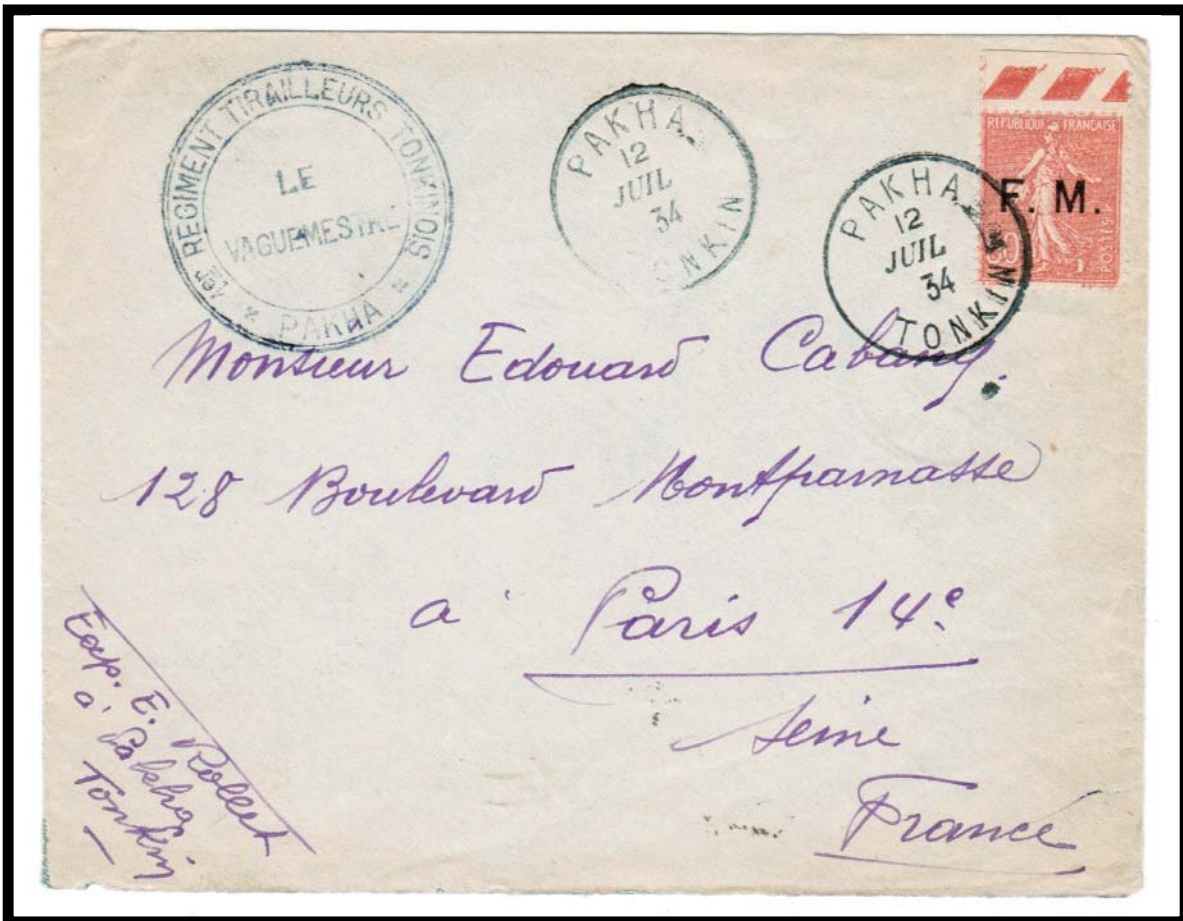 1er REGIMENT TIRAILLEURS TONKINOIS
LE
VAGUEMESTRE
* PAKHA *
PAKHA
12
JUIL
34
TONKIN
PAKHA
12
JUIL
34
TONKIN
REPUBLIQUE FRANCAISE
F. M.
POSTES
Monsieur Edouard Cabany.
128 Boulevard Montparnasse
a' Paris 14e
Seine
France
Exp. E. Rollet
a' Pakha
Tonkin